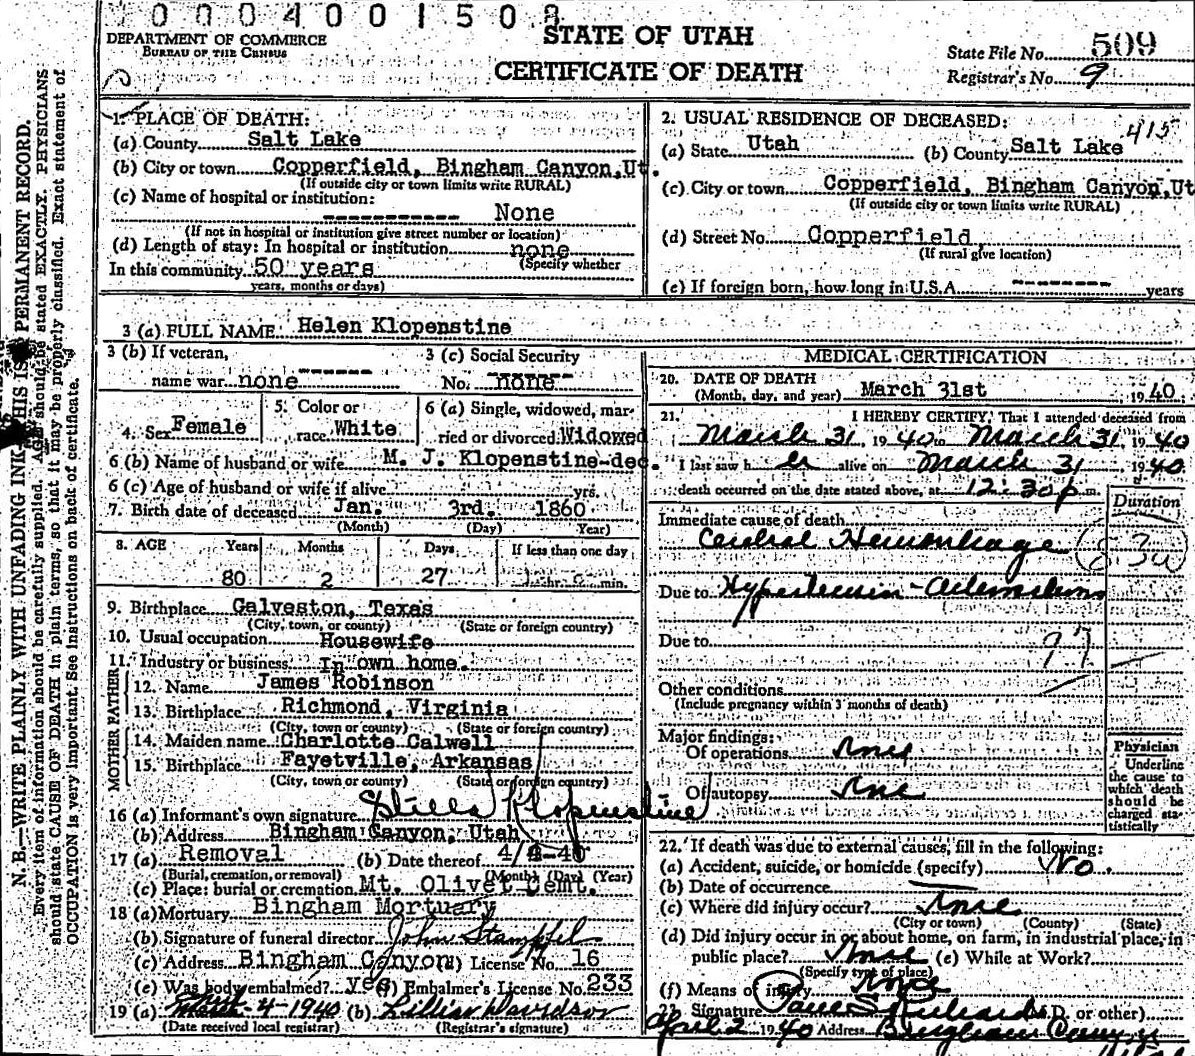 0004001508
DEPARTMENT OF COMMERCE
BUREAU OF THE CENSUS
STATE OF UTAH
CERTIFICATE OF DEATH
State File No. 509
Registrar's No. 9
N. B.—WRITE PLAINLY WITH UNFADING INK—THIS IS PERMANENT RECORD.
Every item of information should be carefully supplied. AGE should be stated EXACTLY. PHYSICIANS
should state CAUSE OF DEATH in plain terms, so that it may be properly classified. Exact statement of
OCCUPATION is very important. See instructions on back of certificate.
1. PLACE OF DEATH:
(a) County Salt Lake
(b) City or town Copperfield, Bingham Canyon, Ut.
(If outside city or town limits write RURAL)
(c) Name of hospital or institution:
----------- None
(If not in hospital or institution give street number or location)
(d) Length of stay: In hospital or institution none
(Specify whether
In this community 50 years
years, months or days)
2. USUAL RESIDENCE OF DECEASED: 415
(a) State Utah (b) County Salt Lake
(c) City or town Copperfield, Bingham Canyon, Ut
(If outside city or town limits write RURAL)
(d) Street No. Copperfield,
(If rural give location)
(e) If foreign born, how long in U.S.A. -------- years
3 (a) FULL NAME Helen Klopenstine
3 (b) If veteran,
name war none ------
3 (c) Social Security
No. none
4. Sex Female
5. Color or
race White
6 (a) Single, widowed, mar-
ried or divorced Widowed
6 (b) Name of husband or wife M. J. Klopenstine-dec.
6 (c) Age of husband or wife if alive yrs.
7. Birth date of deceased Jan. 3rd. 1860
(Month) (Day) Year)
8. AGE Years Months Days If less than one day
80 2 27 hr. min.
9. Birthplace Galveston, Texas
(City, town, or county) (State or foreign country)
10. Usual occupation Housewife
11. Industry or business In own home.
FATHER
12. Name James Robinson
13. Birthplace Richmond, Virginia
(City, town or county) (State or foreign country)
MOTHER
14. Maiden name Charlotte Calwell
15. Birthplace Fayetville, Arkansas
(City, town or county) (State or foreign country)
16 (a) Informant's own signature Stella Klopenstine
(b) Address Bingham Canyon, Utah
17 (a) Removal (b) Date thereof 4/ -40
(Burial, cremation, or removal) (Month) (Day) (Year)
(c) Place: burial or cremation Mt. Olivet Cemt.
18 (a) Mortuary Bingham Mortuary
(b) Signature of funeral director John Stampfel
(c) Address Bingham Canyon (d) License No. 16
(e) Was body embalmed? yes (f) Embalmer's License No. 233
19 (a) 4-1940 (b) Lillian Davidson
(Date received local registrar) (Registrar's signature)
MEDICAL CERTIFICATION
20. DATE OF DEATH
(Month, day, and year) March 31st 1940
21. I HEREBY CERTIFY, That I attended deceased from
March 31, 1940 to March 31, 1940
I last saw her alive on March 31 1940
death occurred on the date stated above, at 12:30 p m
Duration
Immediate cause of death
Cerebral Hemorrhage
Due to Hypertension -
Due to
97
Other conditions
(Include pregnancy within 3 months of death)
Major findings:
Of operations None
Of autopsy None
Physician
Underline
the cause to
which death
should be
charged sta-
tistically
22. If death was due to external causes, fill in the following:
(a) Accident, suicide, or homicide (specify) No.
(b) Date of occurrence
(c) Where did injury occur? None
(City or town) (County) (State)
(d) Did injury occur in or about home, on farm, in industrial place, in
public place? None (e) While at Work?
(Specify type of place)
(f) Means of injury None
23. Signature Richards (M.D. or other)
April 2 1940 Address Bingham Canyon